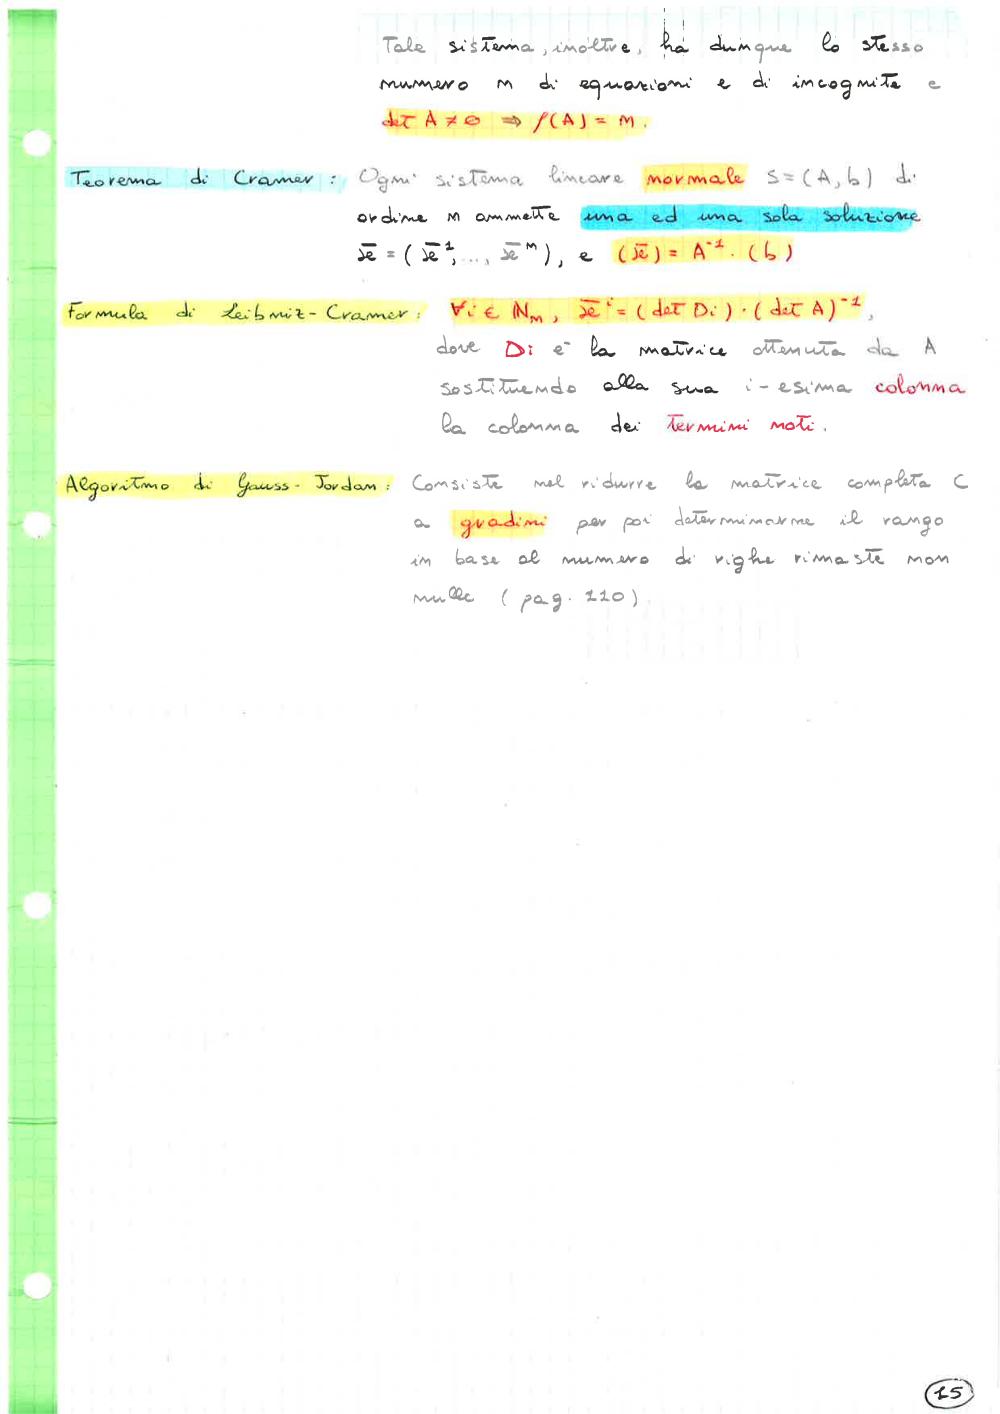 Tale sistema, inoltre, ha dunque lo stesso
numero n di equazioni e di incognite e
det A ≠ 0 ⇒ ρ(A) = n.
Teorema di Cramer: Ogni sistema lineare normale S = (A, b) di
ordine n ammette una ed una sola soluzione
x̄ = (x̄¹, ..., x̄ⁿ), e (x̄) = A⁻¹ · (b)
Formula di Leibniz-Cramer: ∀i ∈ ℕₙ, x̄ⁱ = (det Di) · (det A)⁻¹,
dove Di è la matrice ottenuta da A
sostituendo alla sua i-esima colonna
la colonna dei termini noti.
Algoritmo di Gauss-Jordan: Consiste nel ridurre la matrice completa C
a gradini per poi determinarne il rango
in base al numero di righe rimaste non
nulle (pag. 110)
15